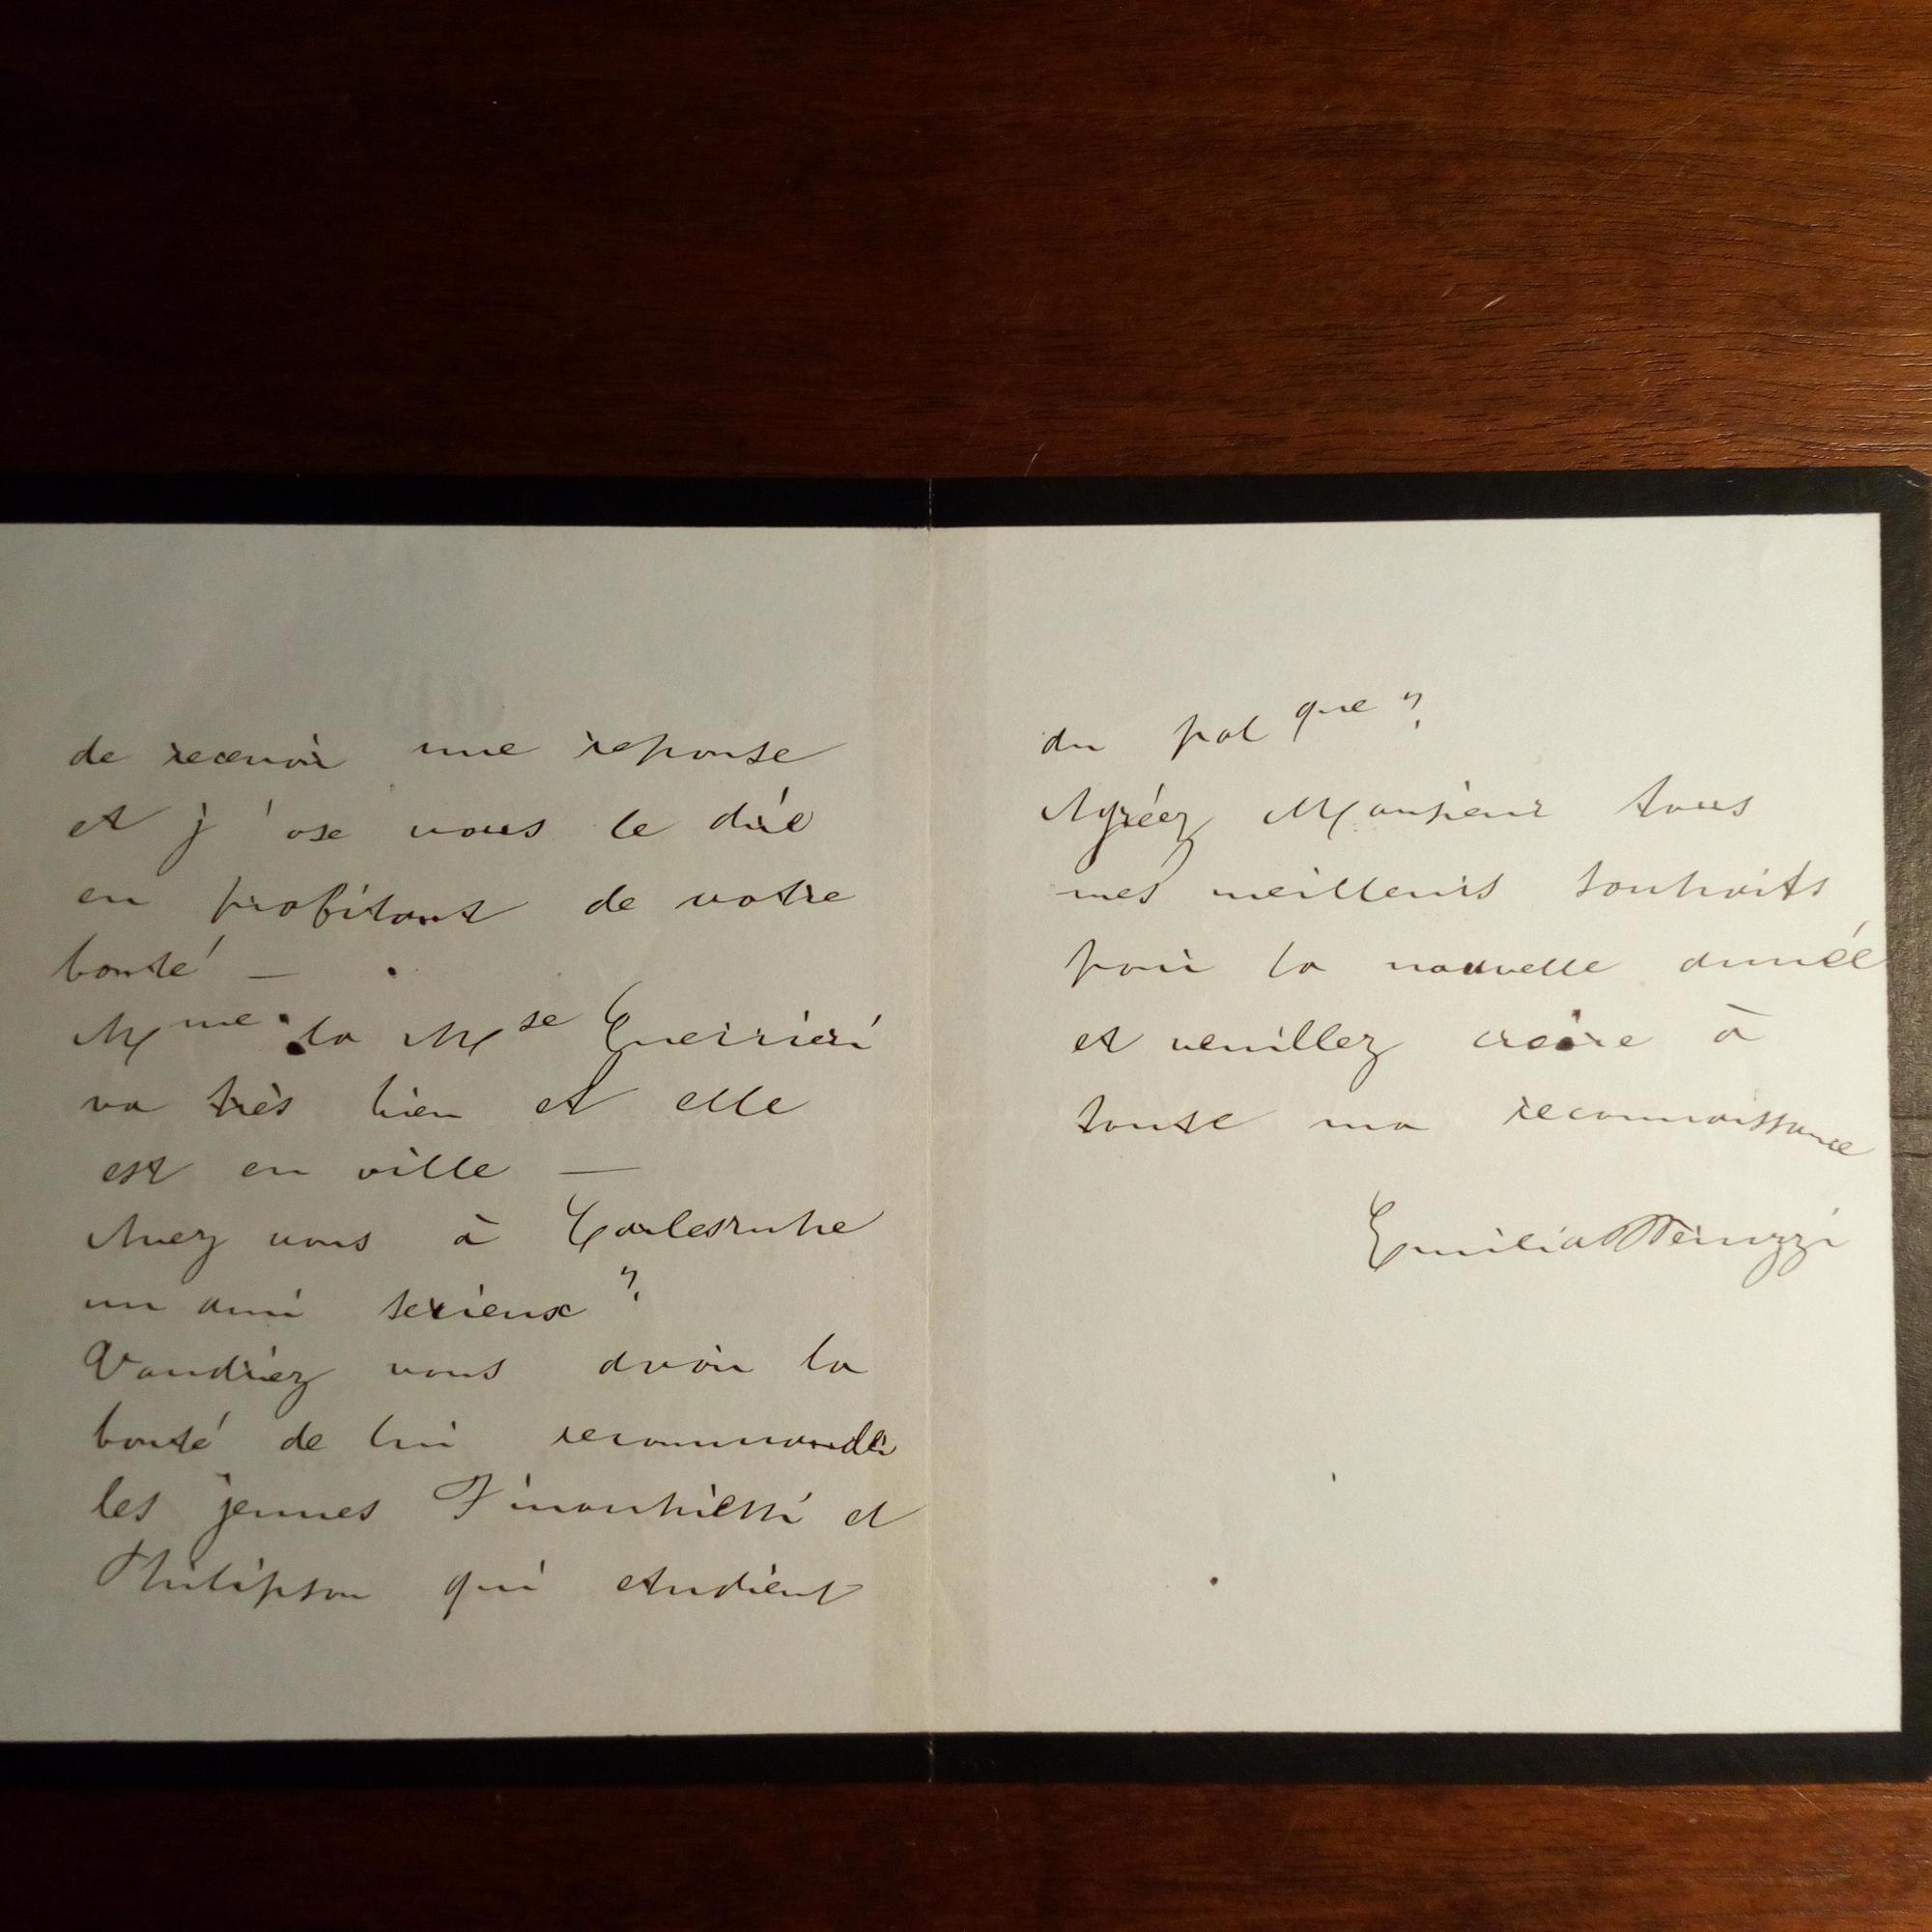 de recevoir une reponse
et j'ose vous le dire
en profitant de votre
bonté —
Mme la Mse Guerrieri
va très bien et elle
est en ville —
Avez vous à Carlesruhe
un ami serieux ?
Voudriez vous avoir la
bonté de lui recommander
les jeunes et
Philipson qui etudient
du que ?
Agréez Monsieur tous
mes meilleurs souhaits
pour la nouvelle année
et veuillez croire à
toute ma reconnaissance
Emilia Peruzzi